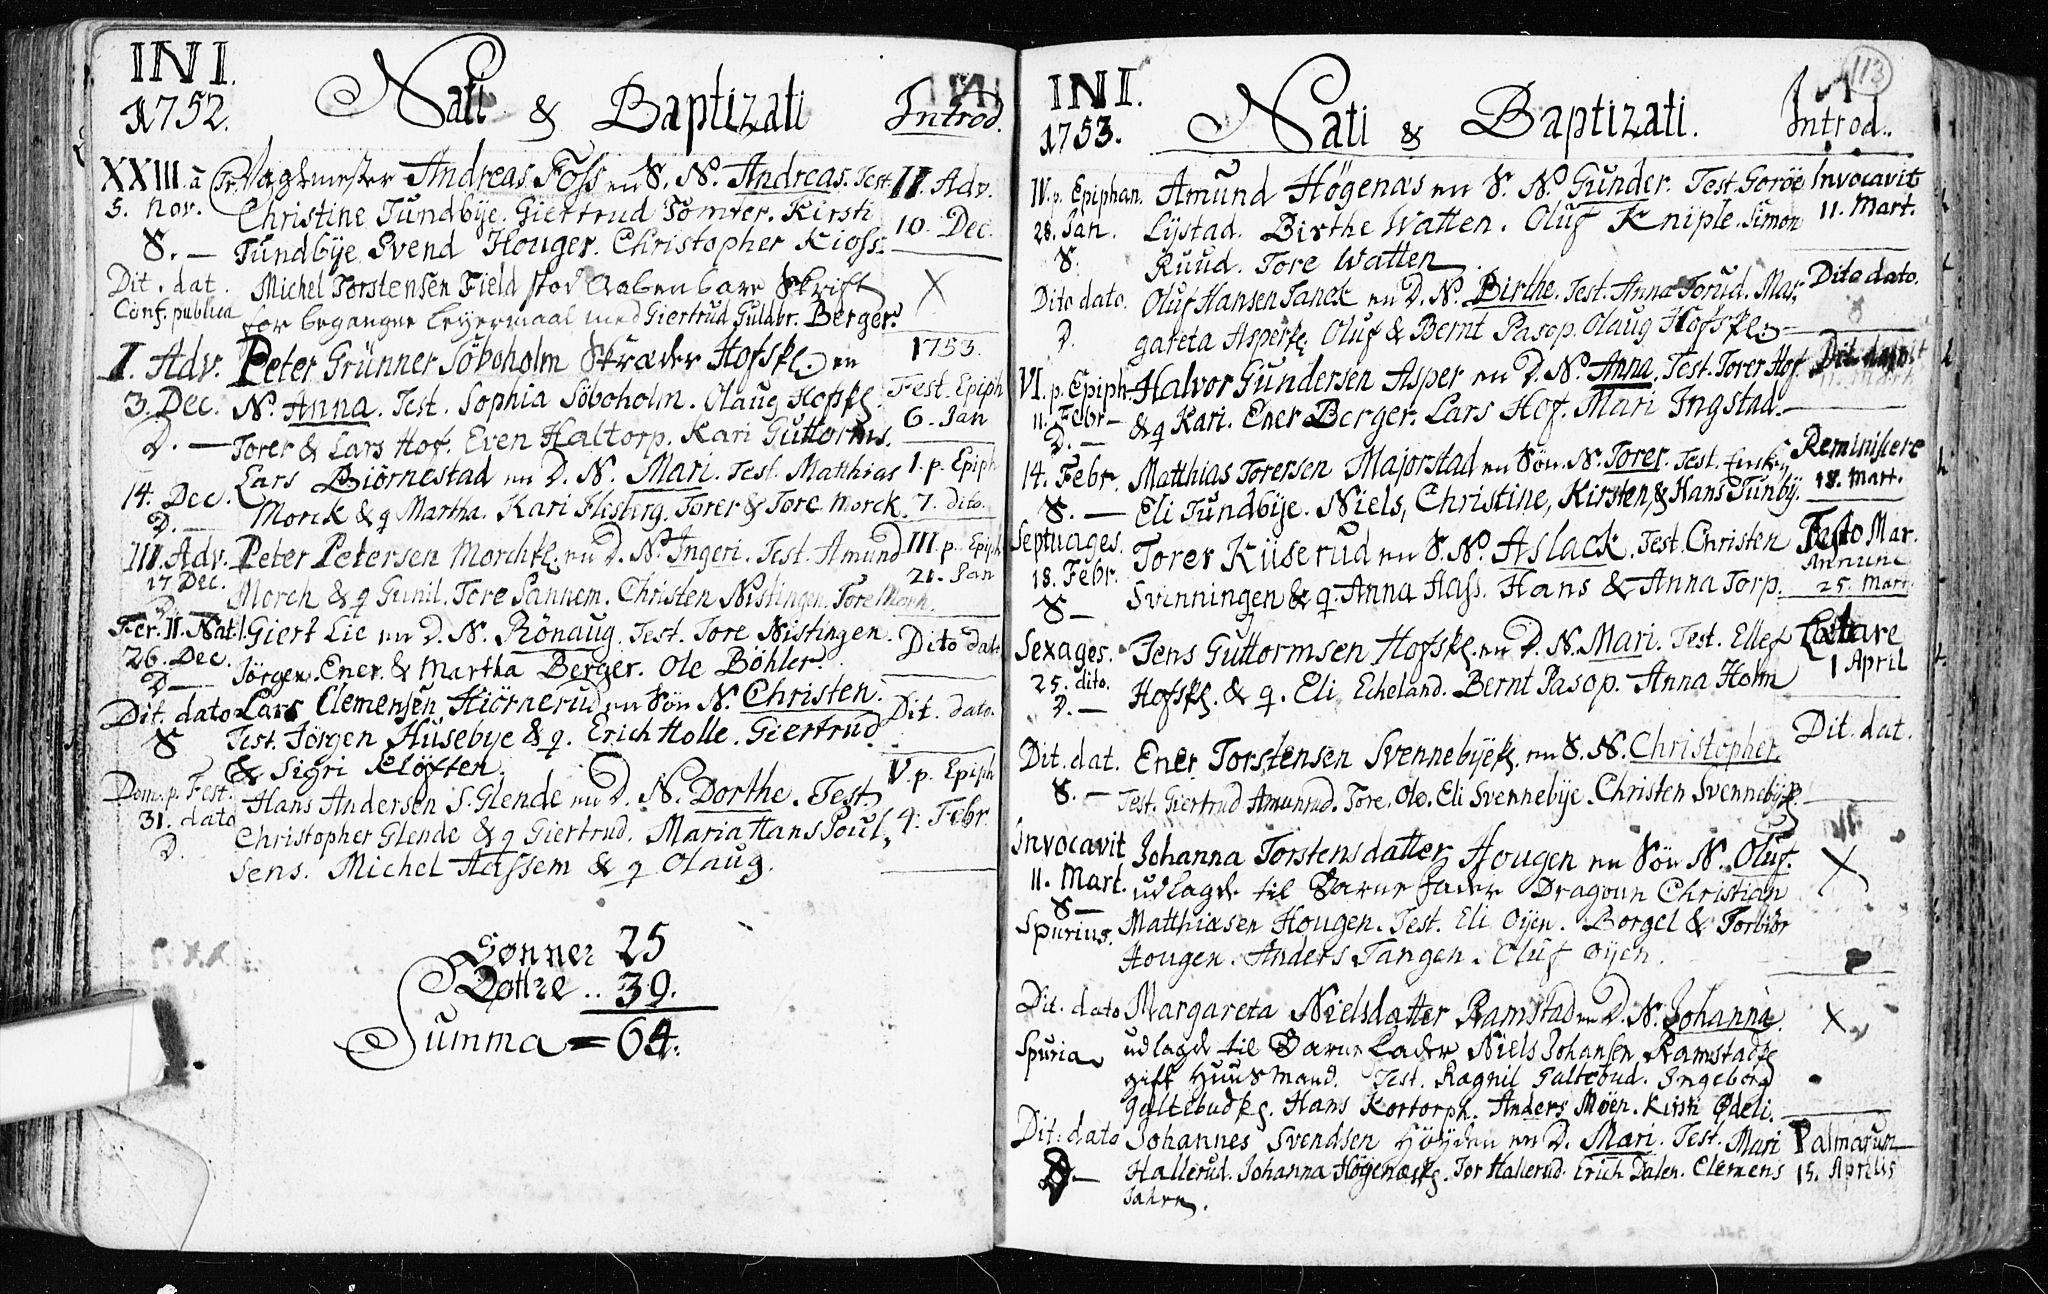 INI.
1752. Nati & Baptizati Introd.
XXIII. à Tr. Vagtmester Andreas Foss en S. N. Andreas. Test. II. Adv.
5. Nov. Christine Tundbÿe. Giertrud Tomter. Kirsti 10. Dec.
S. — Tundbÿe. Svend Houger. Christopher Kioss.
Dit. dat. Michel Torstensen Field stod Aabenbare Skrift X
Conf. publica for begangne leyermaal med Giertrud Guldbr. Berger.
I. Adv. Peter Grünner Söboholm Skræder Hofskl. en 1753.
3. Dec. N. Anna. Test. Sophia Söboholm. Olaug Hofskl Fest. Epiph
D. — Torer & Lars Hof. Even Haltorp. Kari Guttorms. 6. Jan
Lars Biörnestad en D. N. Mari. Test. Matthias 1. p. Epiph
14. Dec. Morck & q Martha. Kari Flesberg. Torer & Tore Morck. 7. dito.
D. —
III. Adv. Peter Petersen Morchskl. en D. N. Ingeri. Test. Amund III. p. Epiph
17 Dec. Morch & q Gunil. Tore Sannem. Christen Nistingen. Tore Morch. 21. Jan
D. —
Fer. II. Nat. Giert Lie en D. N. Rönaug. Test. Tore Nistingen. Dito dato
26. Dec. Jörgen. Ener. & Martha Berger. Ole Böhler.
D —
Dit. dato Lars Clemensen Hiörnerud en Sön N. Christen. Dit. dato.
S Test. Jörgen Husebye & q. Erich Holle. Giertrud
& Sigri Kløften.
Dom. p. Fest. Hans Andersen S. Glende en D. N. Dorthe. Test. V. p. Epiph
31. dato Christopher Glende & q Giertrud. Maria Hans Poul, 4. Febr
D. sens. Michel Hassem & q Olaug.
Sønner 25
Dottre .. 39.
Summa = 64.
113
INI.
1753. Nati & Baptizati. Introd.
IV. p. Epiphan. Amund Högenæs en S. N. Gunder. Test. Goröe Invocavit
28. Jan. Lÿstad. Birthe Watten. Oluf Kniple. Simon 11. Mart.
S. Ruud. Tore Watten
Dito dato. Oluf Hansen Tanck en D. N. Birthe. Test. Anna Torud. Mar, Dito dato.
D. gareta Asperskl. Oluf & Bernt Pasop. Olaug Hofskl.
VI. p. Epiph. Halvor Gundersen Asper en D. N. Anna. Test. Torer Hof Dit. dato
11. Febr — & q Kari. Ener Berger. Lars Hof. Mari Ingstad.
D. —
14. Febr. Matthias Torersen Majorstad en Sön. N. Torer. Test. Reminiscere
S. — Eli Tundbÿe. Niels, Christine, Kirsten, & Hans Tunbÿ. 18. Mart.
Septuages. Torer Kiiserud en S. N. Aslack. Test. Christen Festo Mar.
18. Febr. Svenningen & q. Anna Aass. Hans & Anna Torp. Annunc
S — 25. Mart.
Sexages. Jens Guttormsen Hofskl. en D. N. Mari. Test. Ellef Lætare
25. dito. Hofskl. & q. Eli Echeland. Bernt Pasop. Anna Holm 1 April
D. —
Dit. dat. Ener Torstensen Svennebÿeskl. en S. N. Christopher. Dit. dat.
S. — Test. Giertrud Amunrud. Tore. Ole. Eli Svennebÿe. Christen Svennebÿskl.
Invocavit Johanna Torstensdatter Hougen en Sön N. Oluf. X
11. Mart. udlagde til Barne fader Dragoun Christian
S — Matthiæsen Hougen. Test. Eli Oÿen. Borgel & Torbiör
Spurius. Hougen. Anders Tangen. Oluf Oÿen.
Dit. dato Margareta Nielsdatter Ramstad en D. N. Johanna. X
Spuria udlagde til Barne fader Niels Johansen Ramstadskl
gift Huusmand. Test. Ragnil Galtebud. Ingeborg
Galtebudskl. Hans Kortorph. Anders Moen. Kirsti Ødeli.
Dit. dato Johannes Svendsen Höÿden en D. Mari. Test. Mari Palmarum
D. — Hallerud. Johanna Högenæskl. Tor Hallerud. Erich Dalen. Clemens 15. Aprilis
Jahren.